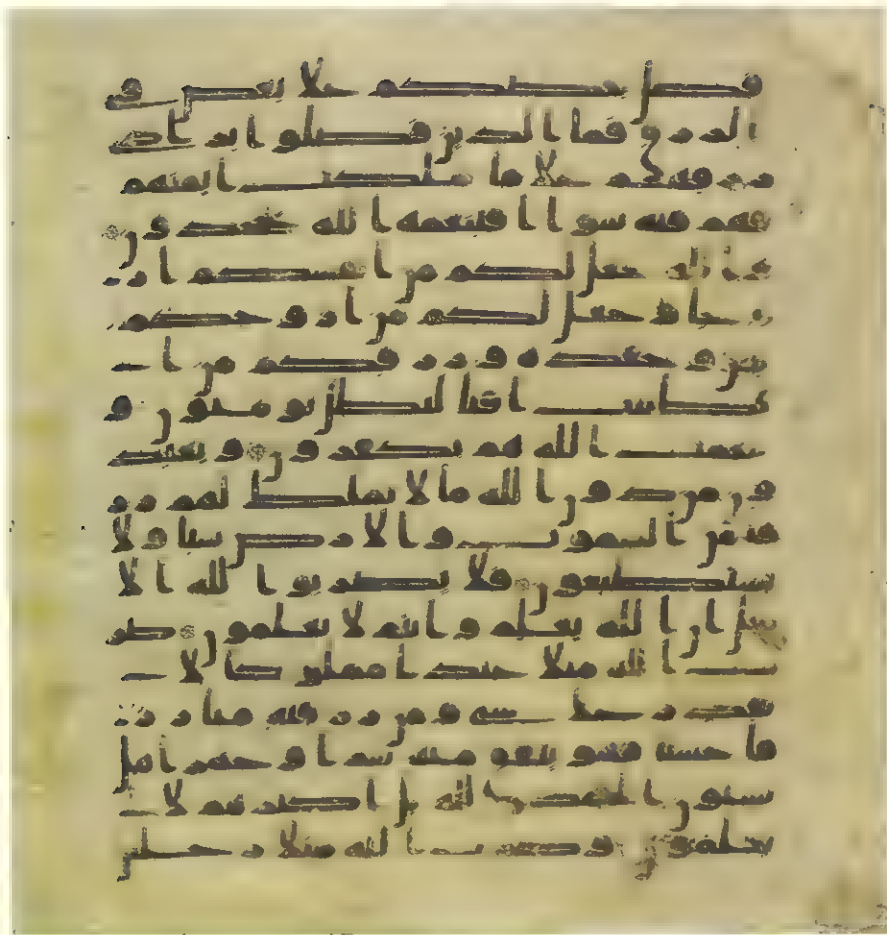 فضل بعضكم علا بعض في
الرزق فما الذين فضلوا برادي
رزقهم علا ما ملكت ايمنهم
فهم فيه سوا افبنعمه الله يجحدون
والله جعل لكم من انفسكم ازو
جا وجعل لكم من ازوجكم
بنين وحفده ورزقكم من ا
لطيبت افبالبطل يومنون و
بنعمت الله هم يكفرون ويعبد
ون من دون الله ما لا يملك لهم رز
قا من السموت والارض شيا ولا
يستطيعون فلا تضربوا لله الا
مثل ان الله يعلم وانتم لا تعلمون ضر
ب الله مثلا عبدا مملوكا لا
يقدر علي شي ومن رزقنه منا رز
قا حسنا فهو ينفق منه سرا وجهرا هل
يستون الحمد لله بل اكثرهم لا
يعلمون وضرب الله مثلا رجلين